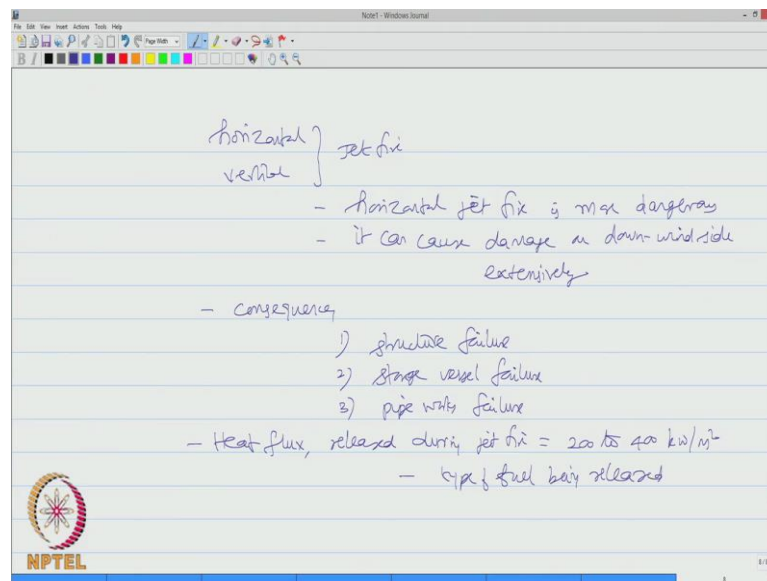 Note1 - Windows Journal
File Edit View Insert Actions Tools Help
Page Width
B I
horizontal
vertical } Jet fire
- horizontal jet fire is more dangerous
- it can cause damage on down-wind side
extensively
- consequences
1) structure failure
2) storage vessel failure
3) pipe works failure
- Heat flux, released during jet fire = 200 to 400 kW/m²
- type of fuel being released
NPTEL